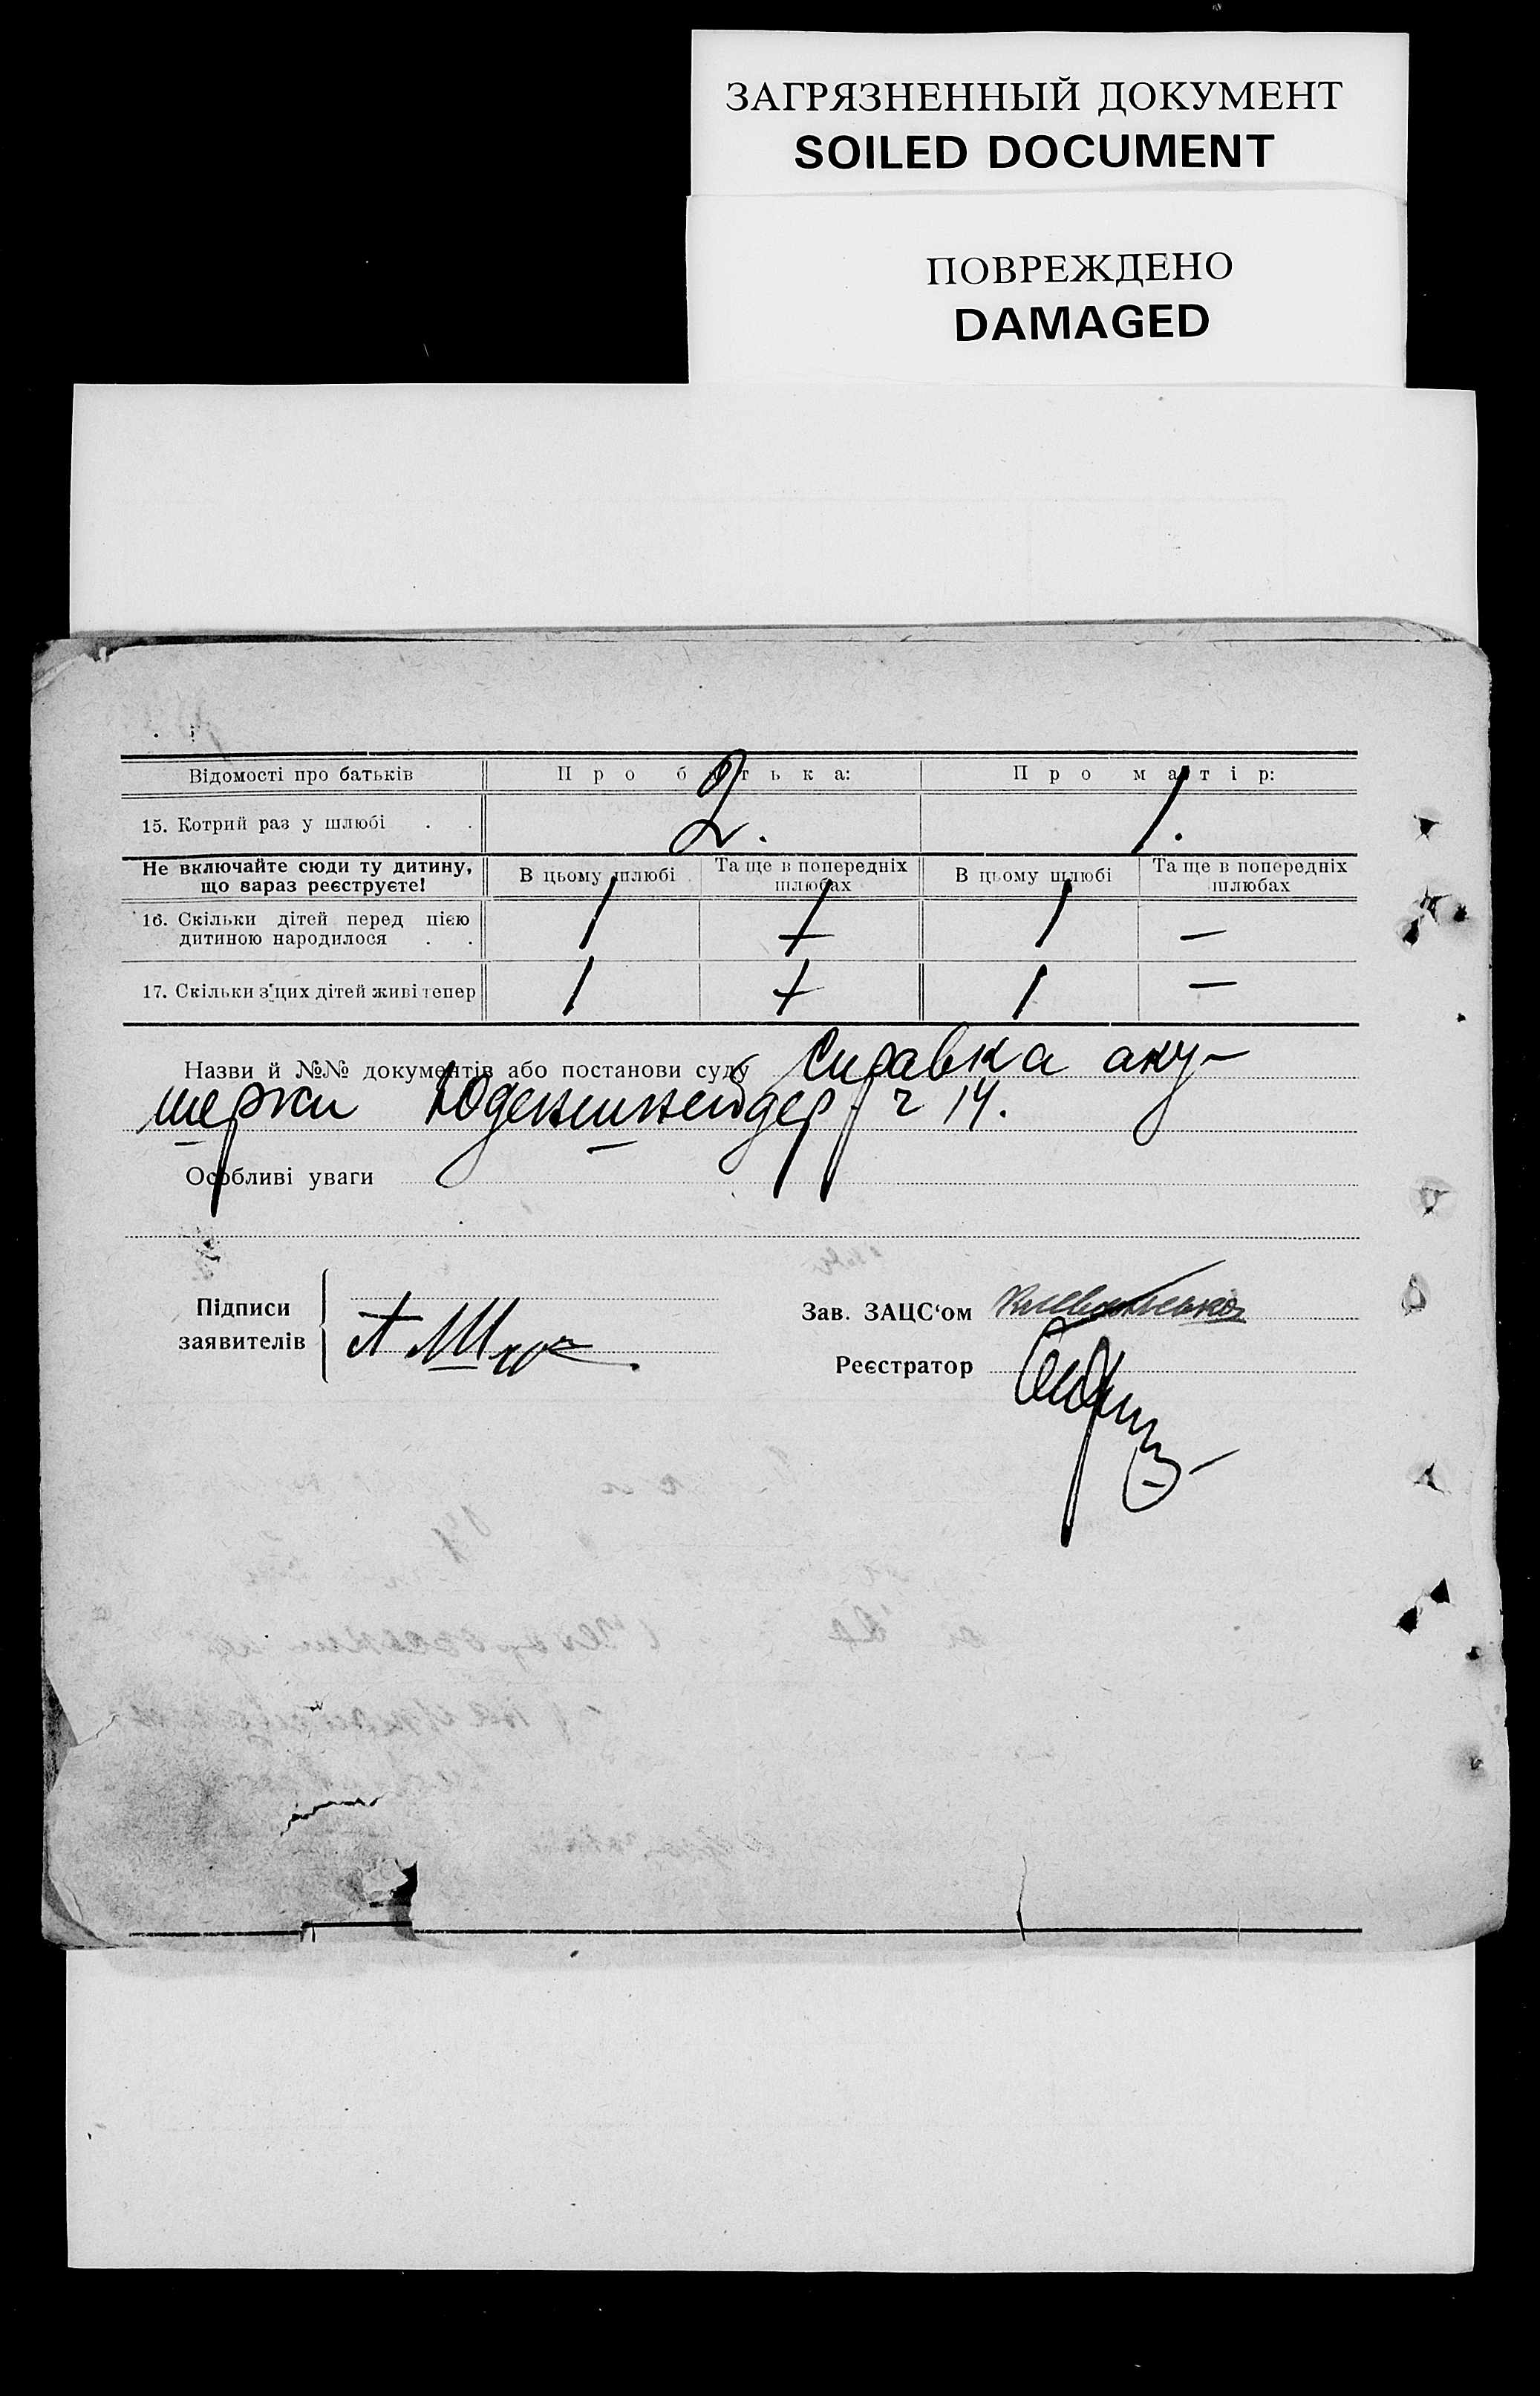 ЗАГРЯЗНЕННЫЙ ДОКУМЕНТ
SOILED DOCUMENT
ПОВРЕЖДЕНО
DAMAGED
Відомості про батьків Про батька: Про матір:
15. Котрий раз у шлюбі . . 2. 1.
Не включайте сюди ту дитину, що зараз реєструєте! В цьому шлюбі Та ще в попередніх шлюбах В цьому шлюбі Та ще в попередніх шлюбах
16. Скільки дітей перед цією
дитиною народилося . . 1 + 1 —
17. Скільки з цих дітей живі тепер 1 + 1 —
Назви й №№ документів або постанови суду Справка аку-
шерки 14.
Особливі уваги
Підписи
заявителів
Зав. ЗАЦС‘ом
Реєстратор